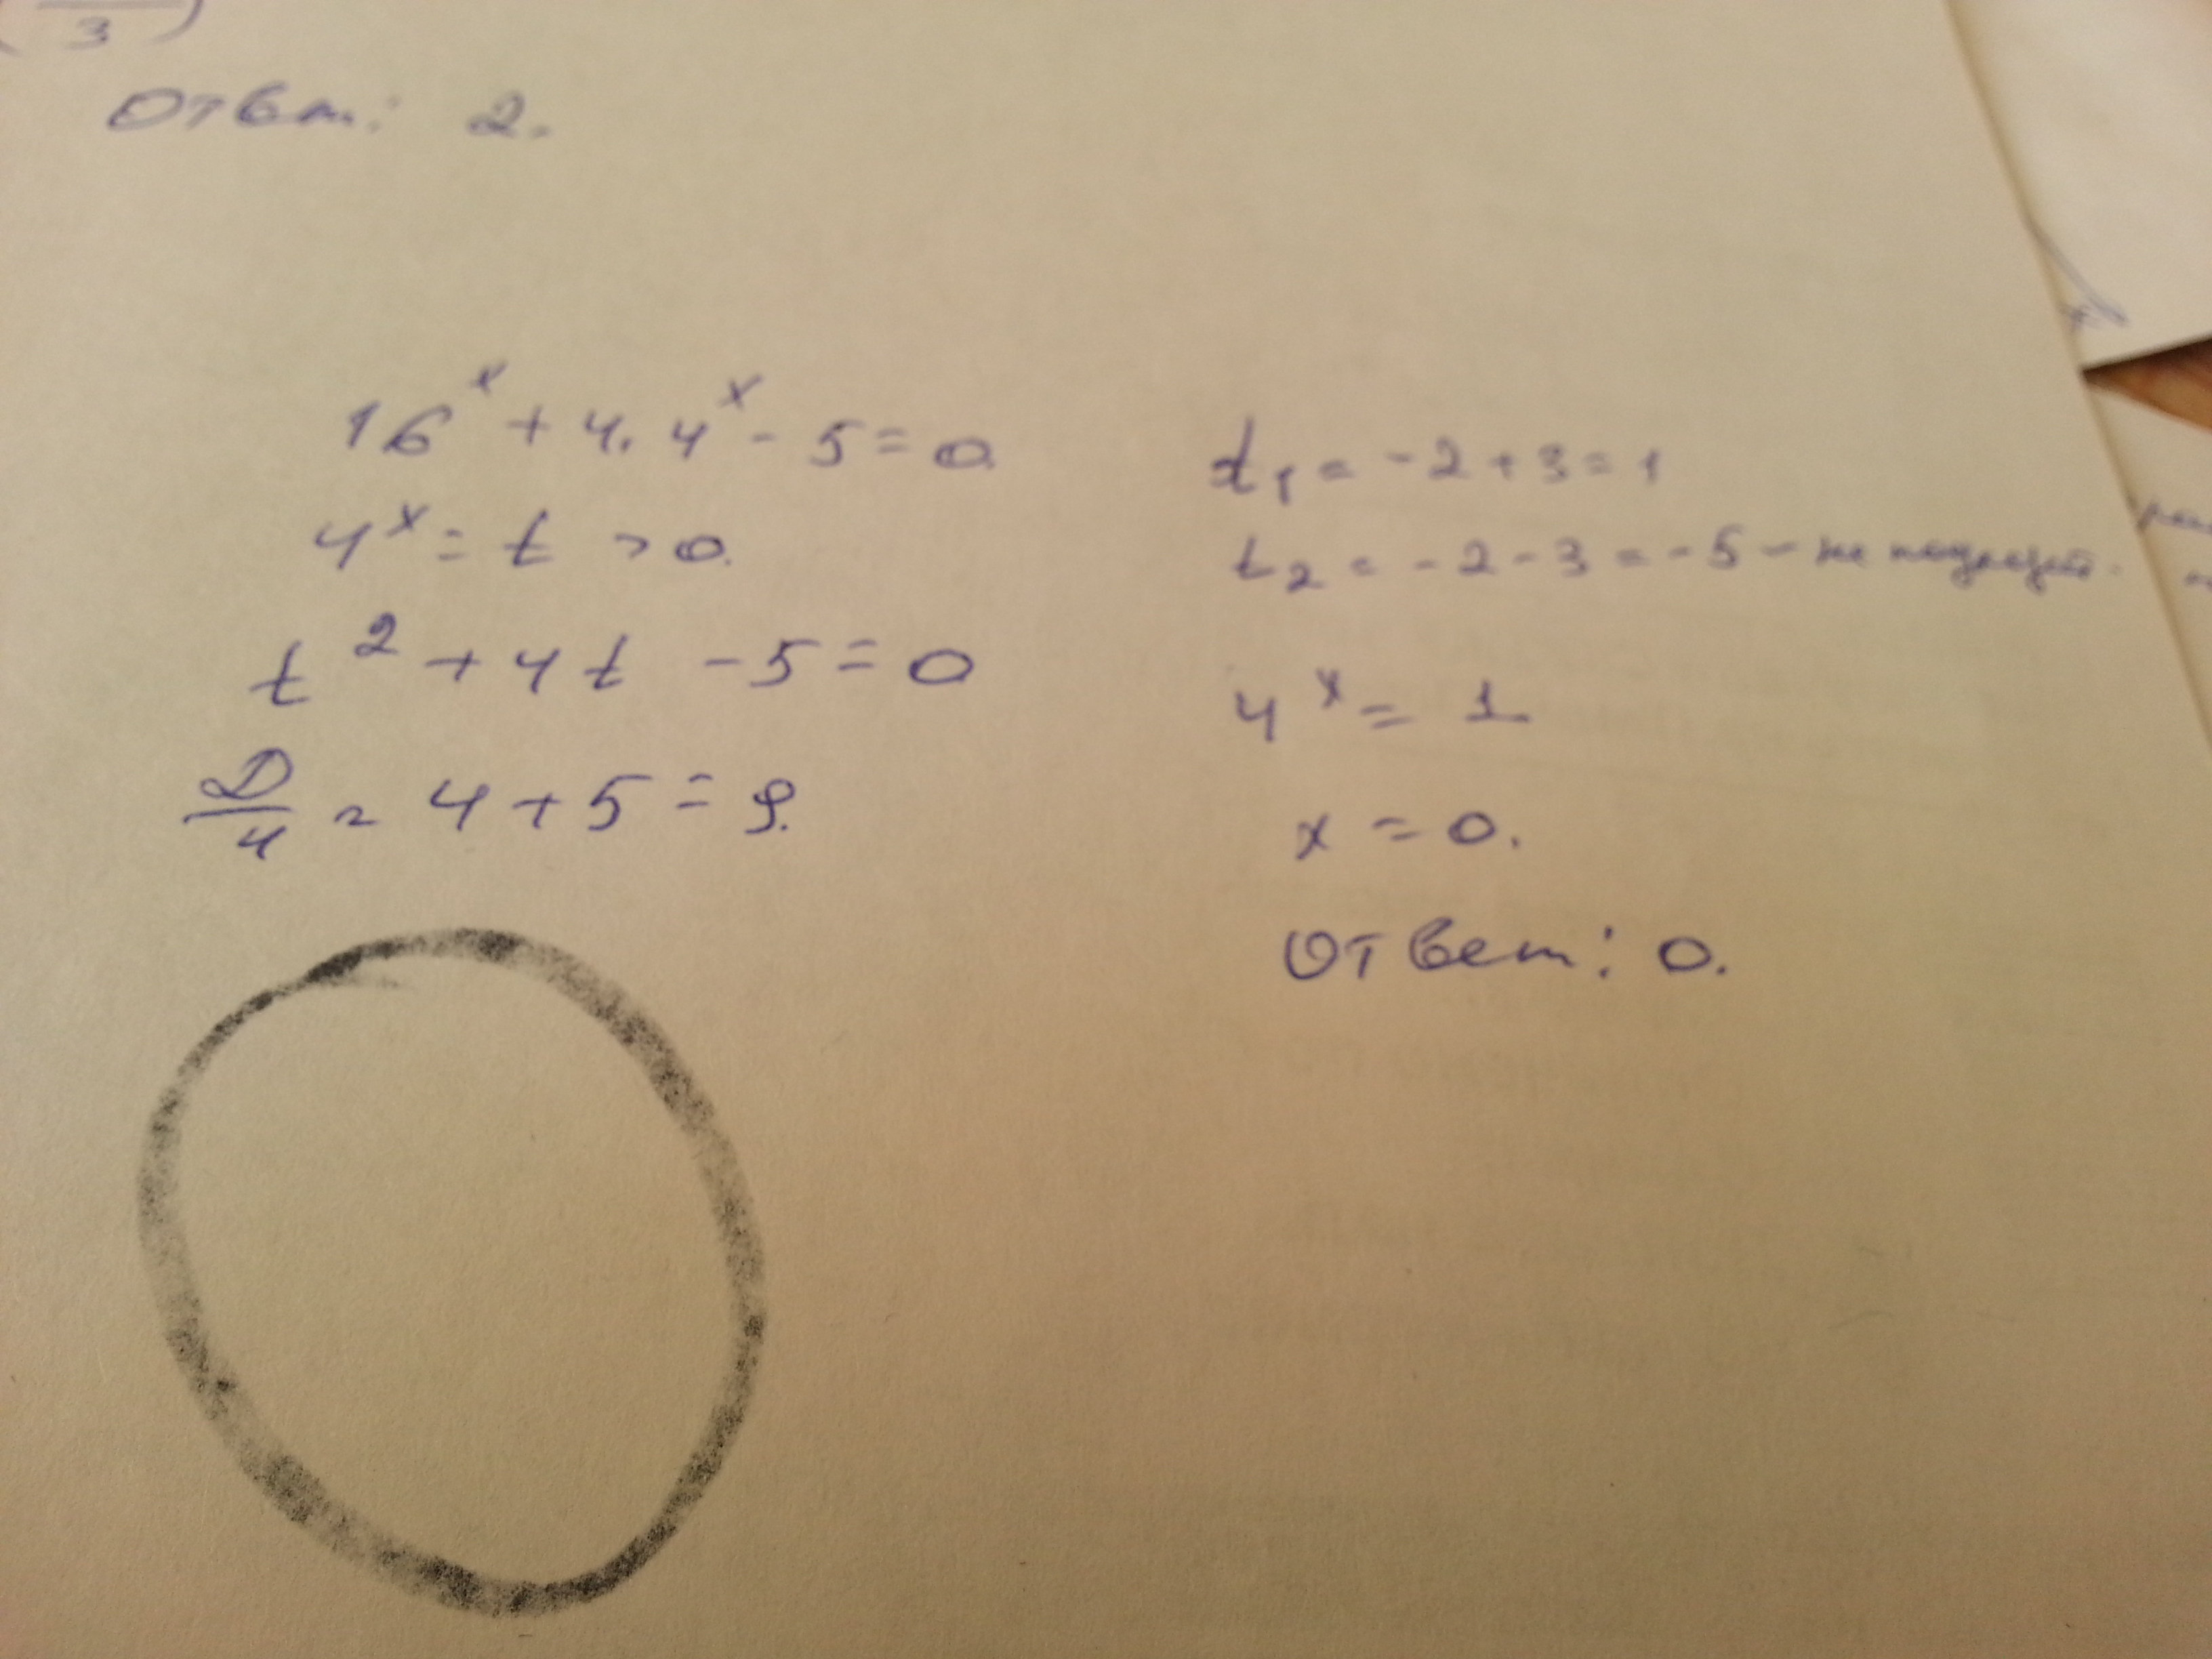 3
Ответ: 2.
16ˣ + 4 · 4ˣ - 5 = 0.
4ˣ = t > 0.
t² + 4t - 5 = 0
D/4 = 4 + 5 = 9.
t₁ = -2 + 3 = 1
t₂ = -2 - 3 = -5 - не
4ˣ = 1
x = 0.
Ответ: 0.